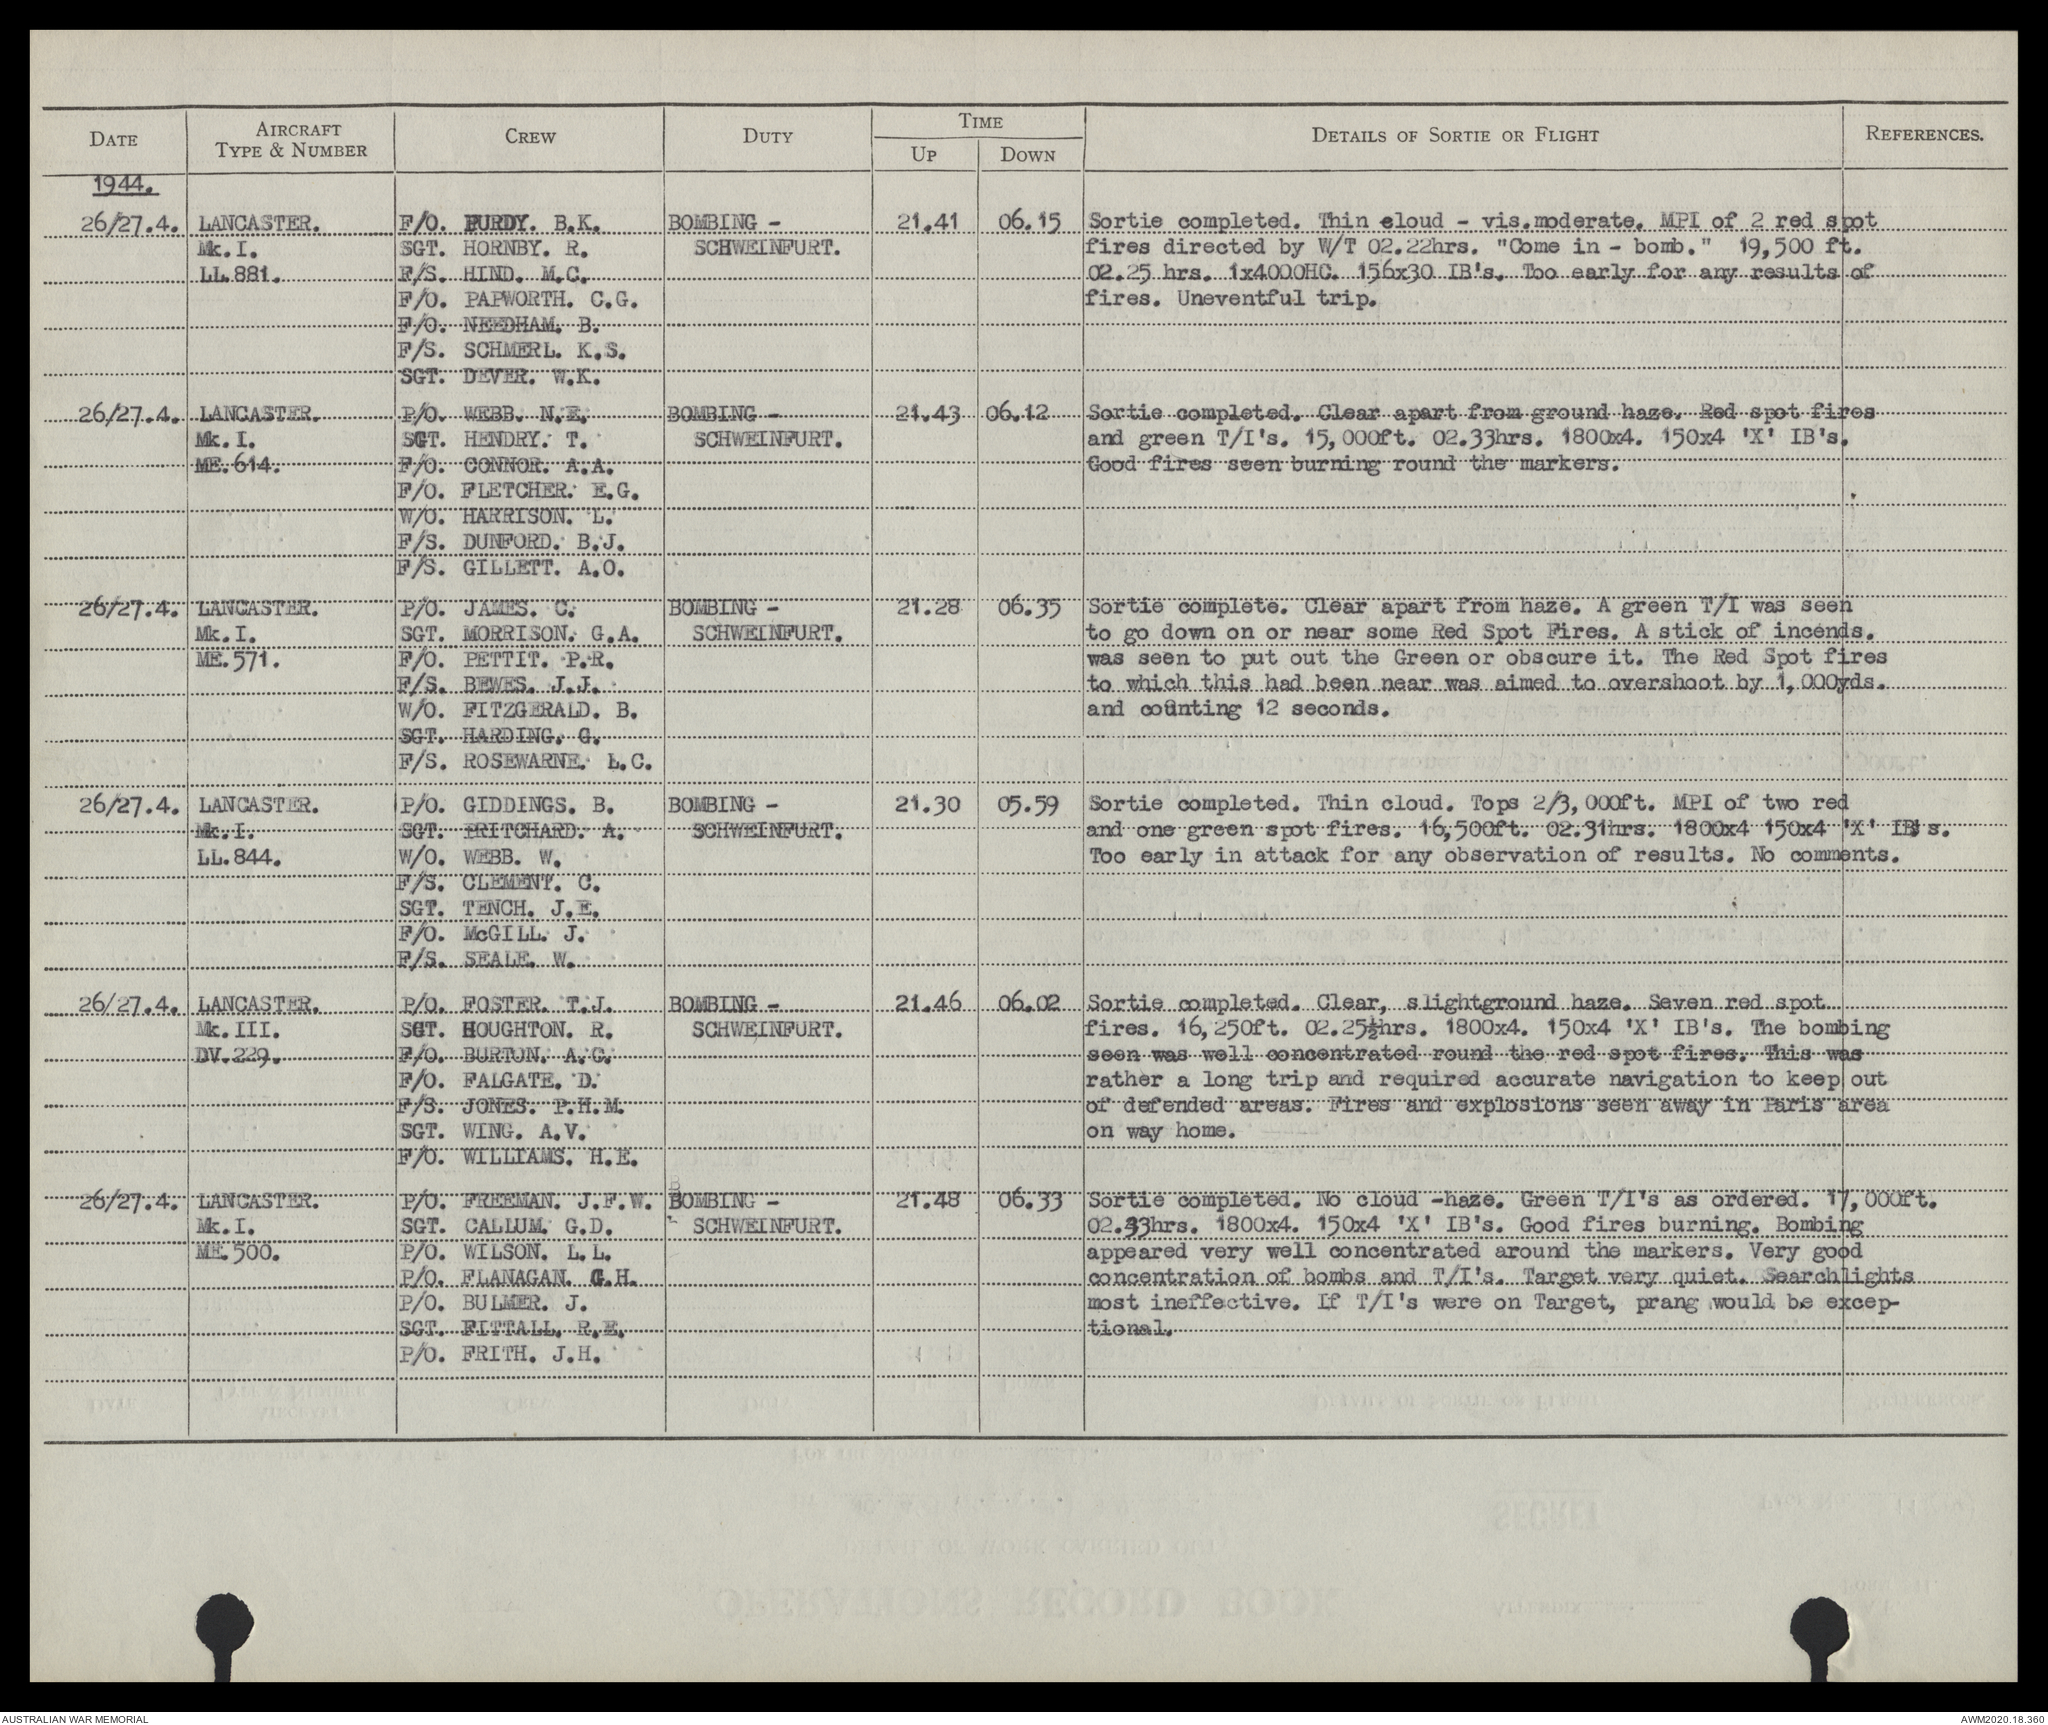 DATE AIRCRAFT TYPE & NUMBER CREW DUTY TIME UP DOWN DETAILS OF SORTIE OR FLIGHT REFERENCES.
1944.
26/27.4. LANCASTER. F/O. PURDY. B.K. BOMBING - 21.41 06.15 Sortie completed. Thin cloud - vis.moderate. MPI of 2 red spot
Mk.I. SGT. HORNBY. R. SCHWEINFURT. fires directed by W/T 02.22hrs. "Come in - bomb." 19,500 ft.
LL.881. F/S. HIND. M.C. 02.25 hrs. 1x4000HC. 156x30 IB's. Too early for any results of
F/O. PAPWORTH. C.G. fires. Uneventful trip.
F/O. NEEDHAM. B.
F/S. SCHMERL. K.S.
SGT. DEVER. W.K.
26/27.4. LANCASTER. P/O. WEBB. N.E. BOMBING - 21.43 06.12 Sortie completed. Clear apart from ground haze. Red spot fires
Mk.I. SGT. HENDRY. T. SCHWEINFURT. and green T/I's. 15,000ft. 02.33hrs. 1800x4. 150x4 'X' IB's.
ME.614. F/O. CONNOR. A.A. Good fires seen burning round the markers.
F/O. FLETCHER. E.G.
W/O. HARRISON. L.
F/S. DUNFORD. B.J.
F/S. GILLETT. A.O.
26/27.4. LANCASTER. P/O. JAMES. C. BOMBING - 21.28 06.35 Sortie complete. Clear apart from haze. A green T/I was seen
Mk.I. SGT. MORRISON. G.A. SCHWEINFURT. to go down on or near some Red Spot Fires. A stick of incends.
ME.571. F/O. PETTIT. P.R. was seen to put out the Green or obscure it. The Red Spot fires
F/S. BEWES. J.J. to which this had been near was aimed to overshoot by 1,000yds.
W/O. FITZGERALD. B. and counting 12 seconds.
SGT. HARDING. G.
F/S. ROSEWARNE. L.C.
26/27.4. LANCASTER. P/O. GIDDINGS. B. BOMBING - 21.30 05.59 Sortie completed. Thin cloud. Tops 2/3,000ft. MPI of two red
Mk.I. SGT. PRITCHARD. A. SCHWEINFURT. and one green spot fires. 16,500ft. 02.31hrs. 1800x4 150x4 'X' IB's.
LL.844. W/O. WEBB. W. Too early in attack for any observation of results. No comments.
F/S. CLEMENT. C.
SGT. TENCH. J.E.
F/O. McGILL. J.
F/S. SEALE. W.
26/27.4. LANCASTER. P/O. FOSTER. T.J. BOMBING - 21.46 06.02 Sortie completed. Clear, slightground haze. Seven red spot
Mk.III. SGT. HOUGHTON. R. SCHWEINFURT. fires. 16,250ft. 02.25½hrs. 1800x4. 150x4 'X' IB's. The bombing
DV.229. F/O. BURTON. A.C. seen was well concentrated round the red spot fires. This was
F/O. FALGATE. D. rather a long trip and required accurate navigation to keep out
F/S. JONES. P.H.M. of defended areas. Fires and explosions seen away in Paris area
SGT. WING. A.V. on way home.
F/O. WILLIAMS. H.E.
26/27.4. LANCASTER. P/O. FREEMAN. J.F.W. BOMBING - 21.48 06.33 Sortie completed. No cloud -haze. Green T/I's as ordered. 17,000ft.
Mk.I. SGT. CALLUM. G.D. SCHWEINFURT. 02.33hrs. 1800x4. 150x4 'X' IB's. Good fires burning. Bombing
ME.500. P/O. WILSON. L.L. appeared very well concentrated around the markers. Very good
P/O. FLANAGAN. G.H. concentration of bombs and T/I's. Target very quiet. Searchlights
P/O. BULMER. J. most ineffective. If T/I's were on Target, prang would be excep-
SGT. FITTALL. R.E. tional.
P/O. FRITH. J.H.
AUSTRALIAN WAR MEMORIAL AWM2020.18.360